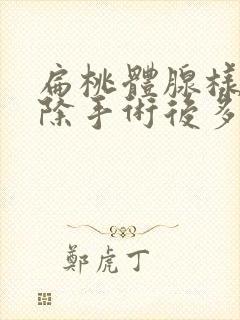 扁桃體腺樣
除手術後多
鄭虎丁